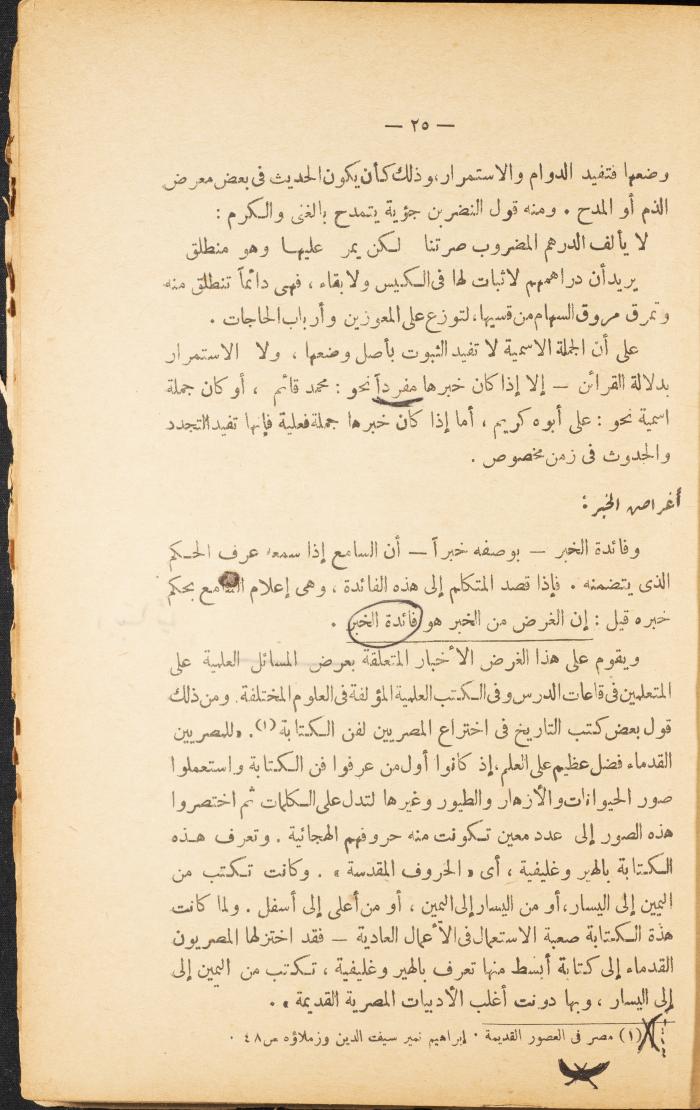 — ٢٥ —
وضعها فتفيد الدوام والاستمرار، وذلك كأن يكون الحديث فى بعض معرض
الذم أو المدح . ومنه قول النضر بن جؤية يتمدح بالغنى والكرم :
لا يألف الدرهم المضروب صرتنا لكن يمر عليها وهو منطلق
يريد أن دراهمهم لا ثبات لها فى الكيس ولا بقاء ، فهى دائماً تنطلق منه
وتمرق مروق السهام من قسيها، لتوزع على المعوزين وأرباب الحاجات .
على أن الجملة الاسمية لا تفيد الثبوت بأصل وضعها ، ولا الاستمرار
بدلالة القرائن — إلا إذا كان خبرها مفرداً نحو : محمد قائم ، أو كان جملة
اسمية نحو : على أبوه كريم ، أما إذا كان خبرها جملة فعلية فإنها تفيد التجدد
والحدوث فى زمن مخصوص .
أغراض الخبر :
وفائدة الخبر — بوصفه خبراً — أن السامع إذا سمعه عرف الحكم
الذى يتضمنه . فإذا قصد المتكلم إلى هذه الفائدة ، وهى إعلام السامع بحكم
خبره قيل : إن الغرض من الخبر هو فائدة الخبر .
ويقوم على هذا الغرض الأخبار المتعلقة بعرض المسائل العلمية على
المتعلمين فى قاعات الدرس وفى الكتب العلمية المؤلفة فى العلوم المختلفة. ومن ذلك
قول بعض كتب التاريخ فى اختراع المصريين لفن الكتابة (١). «للمصريين
القدماء فضل عظيم على العلم، إذ كانوا أول من عرفوا فن الكتابة واستعملوا
صور الحيوانات والأزهار والطيور وغيرها لتدل على الكلمات ثم اختصروا
هذه الصور إلى عدد معين تكونت منه حروفهم الهجائية . وتعرف هذه
الكتابة بالهير وغليفية ، أى « الحروف المقدسة » . وكانت تكتب من
اليمين إلى اليسار، أو من اليسار إلى اليمين ، أو من أعلى إلى أسفل . ولما كانت
هذة الكتابة صعبة الاستعمال فى الأعمال العادية — فقد اختزلها المصريون
القدماء إلى كتابة أبسط منها تعرف بالهير وغليفية ، تكتب من اليمين إلى
إلى اليسار ، وبها دونت أغلب الأدبيات المصرية القديمة » .
(١) مصر فى العصور القديمة . ابراهيم نمير سيف الدين وزملاؤه ص ٤٨ .